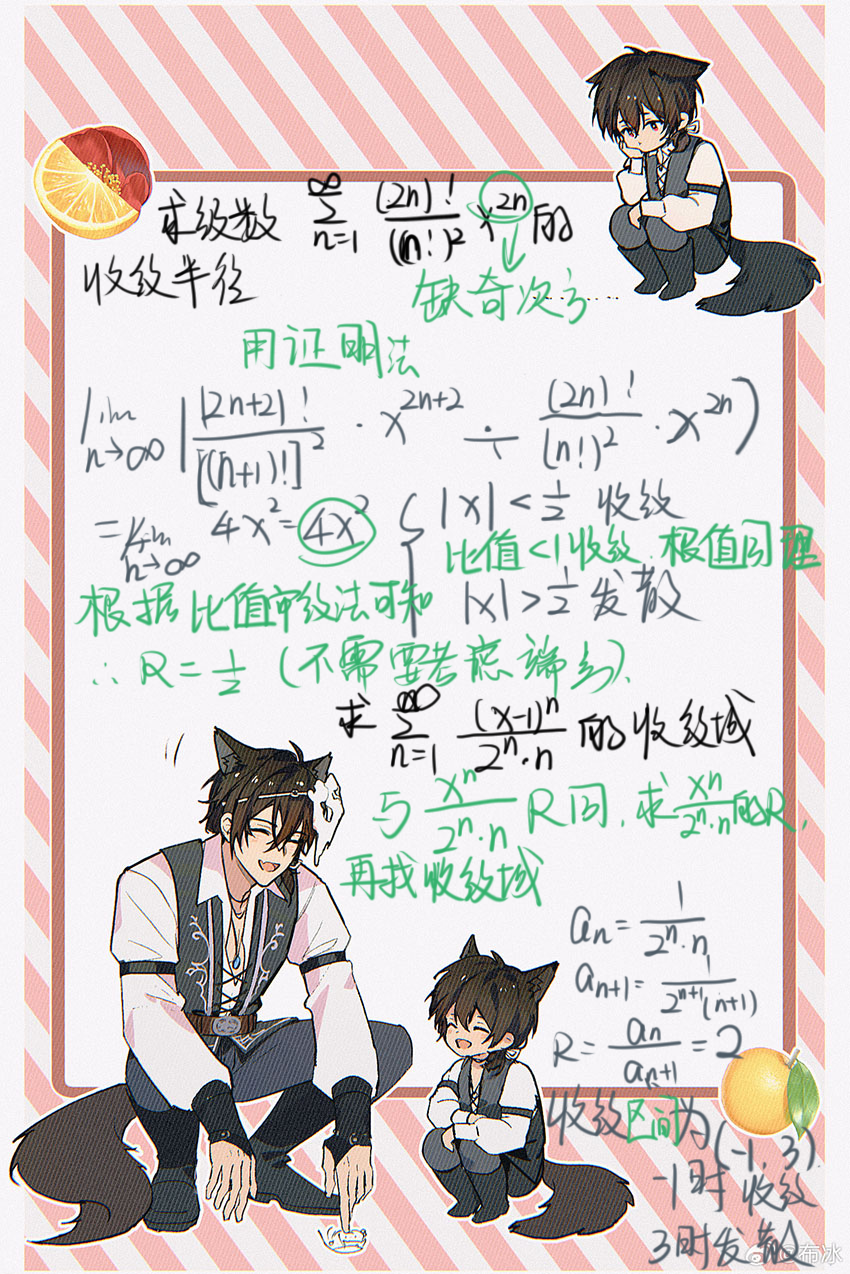 求级数 ∞∑n=1 (2n)!/(n!)² x²ⁿ 的
收敛半径
缺奇次方……
用证明法
lim n→∞ |[2n+2]!/[(n+1)!]² · x²ⁿ⁺² ÷ (2n)!/(n!)² · x²ⁿ)
=lim n→∞ 4x²=4x² { |x|<1/2 收敛
比值<1收敛.根值同理
根据比值审敛法可知 |x|>1/2 发散
∴R=1/2 (不需要考虑端点).
求 ∞∑n=1 (x-1)ⁿ/2ⁿ·n 的收敛域
与 xⁿ/2ⁿ·n R同.求 xⁿ/2ⁿ·n 的R,
再找收敛域
aₙ=1/2ⁿ·n
aₙ₊₁=1/2ⁿ⁺¹(n+1)
R=aₙ/aₙ₊₁=2
收敛区间为(-1,3)
-1时收敛
3时发散
@布冰